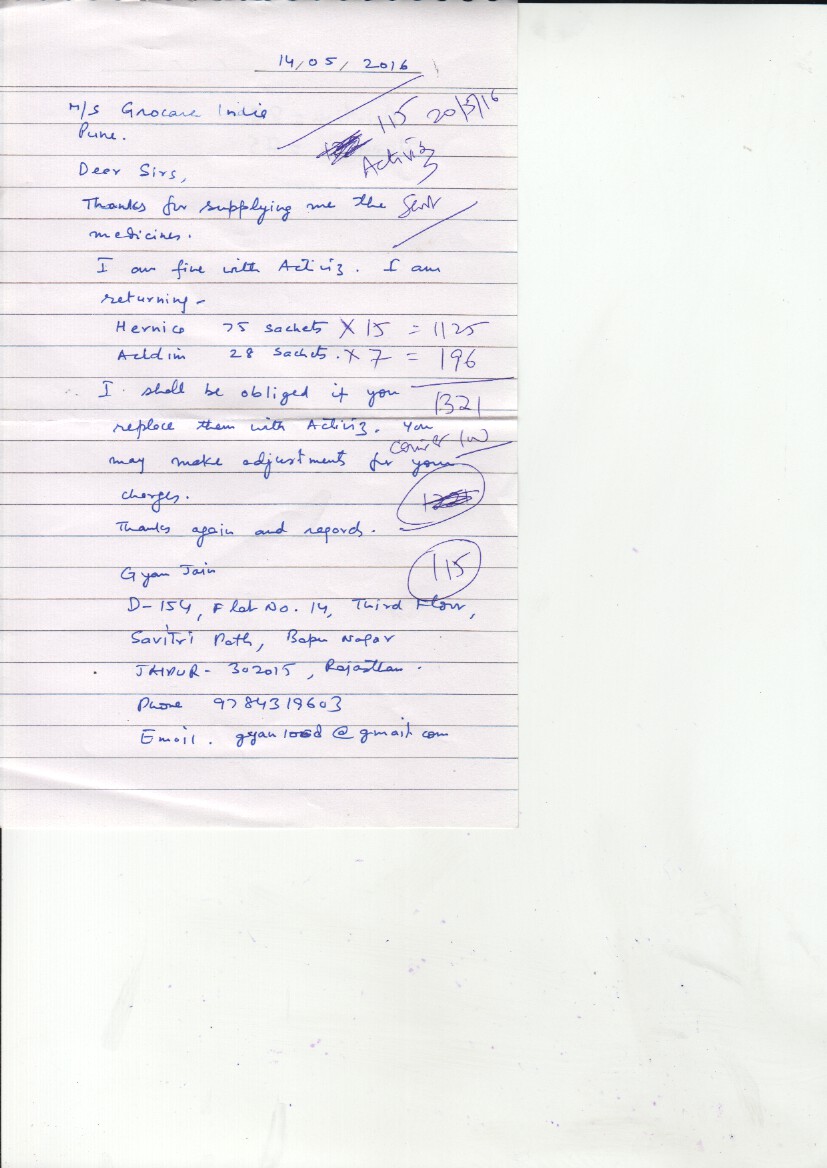 14/05/2016
M/s Grocare India
Pune.
115 20/5/16
Activiz
Sent
Deer Sirs,
Thanks for supplying me the
medicines.
I am fine with Activiz. I am
returning -
Hernica 75 sachets × 15 = 1125
Acidim 28 sachets. × 7 = 196
1321
I shall be obliged if you
replace them with Activiz. You
may make adjustments for your
charges.
courier
115
Thanks again and regards.
Gyan Jain
D-154, Flat No. 14, Third Floor,
Savitri Path, Bapu Nagar
JAIPUR - 302015, Rajasthan.
Phone 9784319603
Email. @gmail com